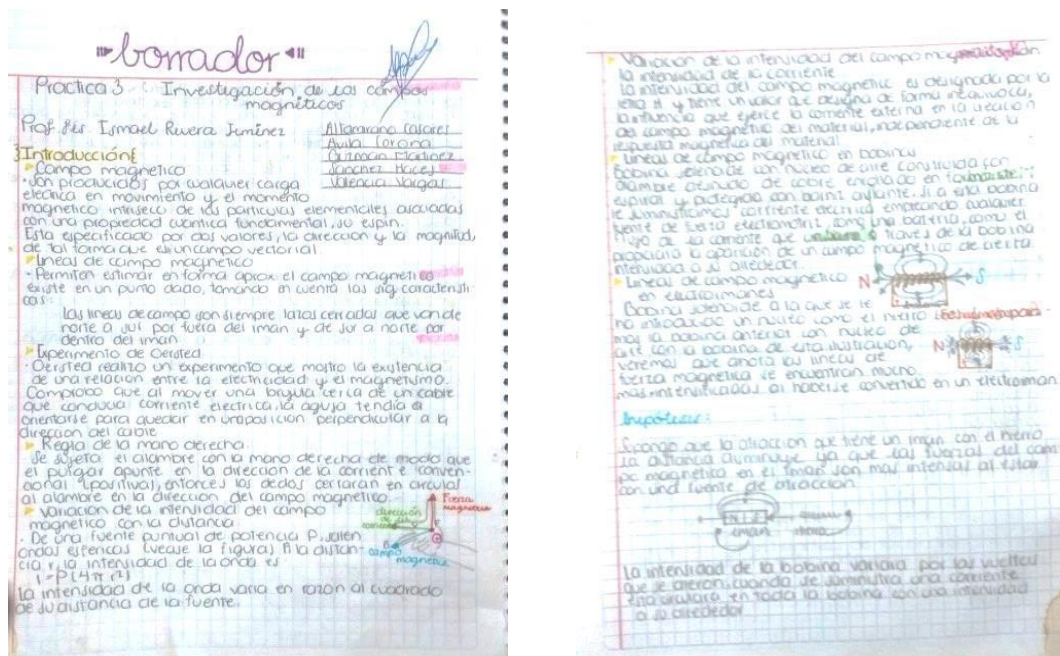 borrador
Practica 3 Investigación de los campos
magnéticos
Prof. Ismael Rivera Jiminez
Altamirano Casarez
Avila Corona
Guzmán Martinez
Sanchez Maces
Valencia Vargas
Introducción
Campo magnetico
• Son producidos por cualquier carga
electrica en movimiento y el momento
magnetico intriseco de las particulas elementales asociadas
con una propiedad cuantica fundamental, su espin.
Esta especificado por dos valores, la dirección y la magnitud,
de tal forma que es un campo vectorial.
Lineas de campo magnetico
• Permiten estimar en forma aprox el campo magnetico
existe en un punto dado, tomando en cuenta las sig caracteristi
cas:
Las lineas de campo son siempre lazos cerradas que van de
norte a sur por fuera del iman y de sur a norte por
dentro del iman
Experimento de Oersted
• Oersted realizo un experimento que mostro la existencia
de una relación entre la electricidad y el magnetismo.
Comprobo que al mover una brujula cerca de un cable
que conducia corriente electrica, la aguja tendía a
orientarse para quedar en una posición perpendicular a la
direccion del cable
Regla de la mano derecha:
Se sujeta el alambre con la mano derecha de modo que
el pulgar apunte en la dirección de la corriente (conven-
cional (positiva), entonces los dedos cerraran en circulos
al alambre en la dirección del campo magnetico.
Variación de la intensidad del campo
magnetico con la distancia
• De una fuente puntual de potencia P salen
ondas esfericas (vease la figura) A la distan-
cia r, la intensidad de la onda es
I=P(4πr²)
La intensidad de la onda varia en razon al cuadrado
de su distancia de la fuente.
Fuerza
magnetica
dirección
corriente
campo
magnetico
Variación de la intensidad del campo
la intensidad de la corriente
La intensidad del campo magnetico es designada por la
letra H y tiene un valor que designa de forma inequivoca,
la influencia que ejerce la corriente externa en la
del campo magnetico del material, independiente de la
respuesta magnetica del material
Lineas de campo magnetico en bobinas
Bobina solenoide con nucleo de aire construida con
alambre desnudo de cobre enrollado en forma de
espiral y protegida con barniz aislante. Si a esta bobina
le suministramos corriente electrica empleando cualquier
fuente de fuerza electromotriz, como una bateria, como el
flujo de la corriente que a través de la bobina
propiciara la aparición de un campo magnetico de cierta
intensidad a su alrededor.
N S
Lineas de campo magnetico
en electroimanes
Bobina solenoide a la que se le
ha introducido un nucleo como el hierro
mos la bobina anterior con nucleo de
aire con la bobina de esta ilustración,
veremos que ahora las lineas de
fuerza magnetica se encuentran mucho
mas intensificadas al haberse convertido en un electroiman
N S
Hipótesis:
Supongo que la atracción que tiene un iman con el hierro
la distancia disminuye ya que las fuerzas del cam
po magnetico en el iman son mas intensas al estar
con una fuente de atracción
iman
La intensidad de la bobina variara por las vueltas
que se dieron, cuando se suministra una corriente
esta circulara en toda la bobina con una intensidad
a su alrededor